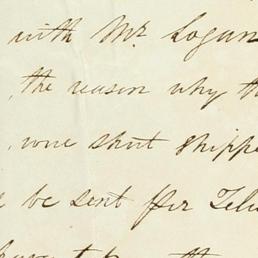 with Mr Logan
the reason why th
were short shippe
be sent per